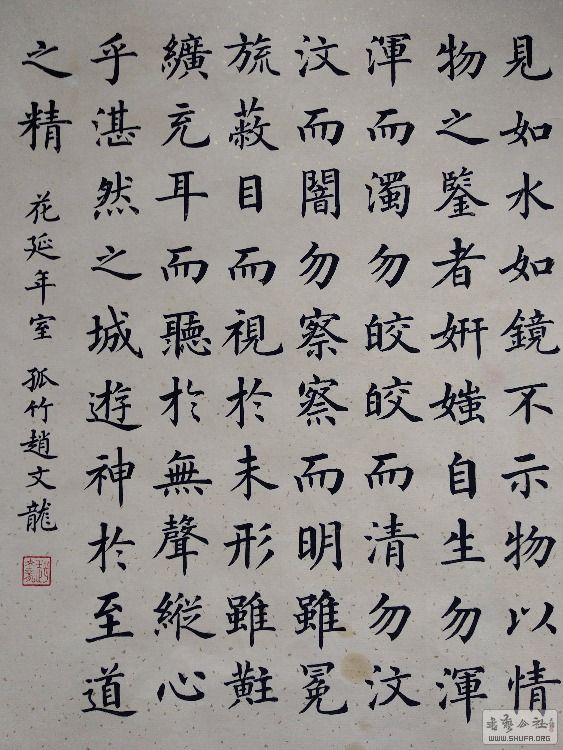 見如水如鏡不示物以情
物之鑒者妍媸自生勿渾
渾而濁勿皎皎而清勿汶
汶而闇勿察察而明雖冕
旒蔽目而視於未形雖黈
纊充耳而聽於無聲縱心
乎湛然之城遊神於至道
之精
花延年室 孤竹趙文龍
書藝公社
WWW.SHUFA.ORG